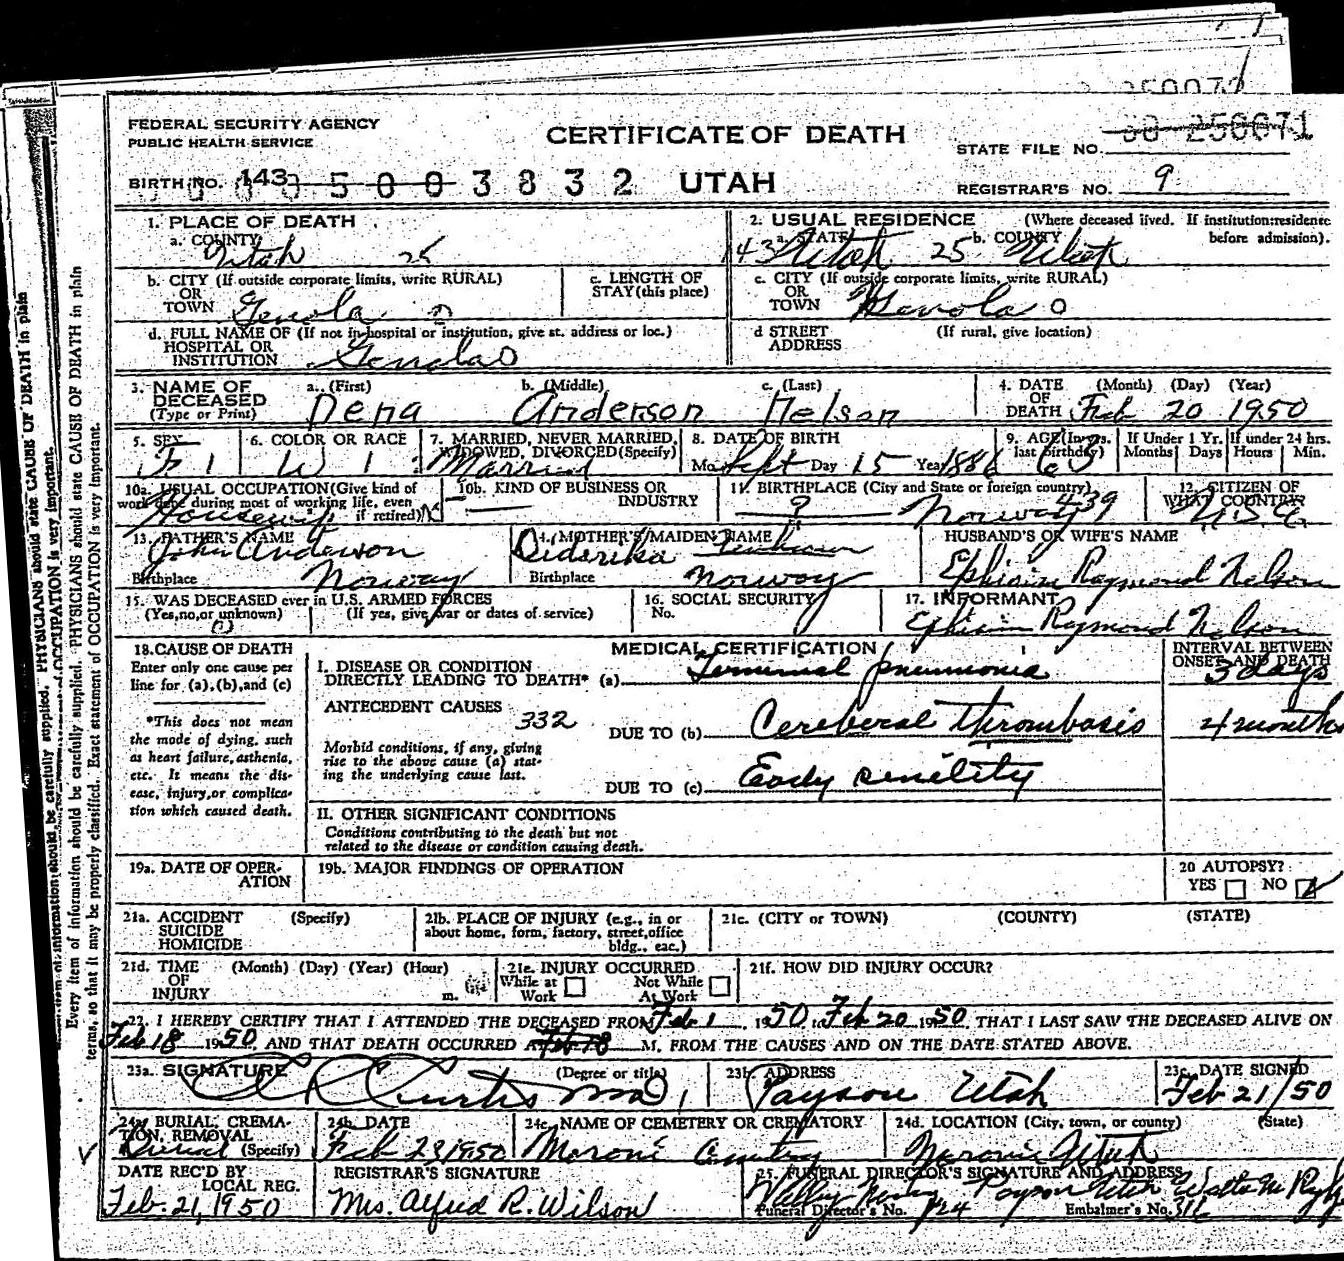 FEDERAL SECURITY AGENCY
PUBLIC HEALTH SERVICE
CERTIFICATE OF DEATH
STATE FILE NO. 250071
BIRTH NO. 143 5003832 UTAH
REGISTRAR'S NO. 9
1. PLACE OF DEATH
a. COUNTY Utah 25
2. USUAL RESIDENCE (Where deceased lived. If institution:residence before admission).
a. STATE 43 Utah 25 b. COUNTY Utah
b. CITY (If outside corporate limits, write RURAL) OR TOWN Genola 0
c. LENGTH OF STAY (this place)
c. CITY (If outside corporate limits, write RURAL) OR TOWN Genola 0
d. FULL NAME OF (If not in hospital or institution, give st. address or loc.) HOSPITAL OR INSTITUTION Genola 0
d STREET ADDRESS (If rural, give location)
3. NAME OF DECEASED (Type or Print) a. (First) Dena b. (Middle) Anderson c. (Last) Nelson
4. DATE OF DEATH (Month) (Day) (Year) Feb 20 1950
5. SEX F 1
6. COLOR OR RACE W 1
7. MARRIED, NEVER MARRIED, WIDOWED, DIVORCED (Specify) Married
8. DATE OF BIRTH Mo. Sept Day 15 Year 1886
9. AGE (In yrs. last birthday) 63
If Under 1 Yr. Months Days
If under 24 hrs. Hours Min.
10a. USUAL OCCUPATION (Give kind of work done during most of working life, even if retired) Housewife
10b. KIND OF BUSINESS OR INDUSTRY
11. BIRTHPLACE (City and State or foreign country) ? Norway 439
12. CITIZEN OF WHAT COUNTRY? U.S.A.
13. FATHER'S NAME John Anderson
Birthplace Norway
14. MOTHER'S MAIDEN NAME Dederika
Birthplace Norway
HUSBAND'S OR WIFE'S NAME
Ephraim Raymond Nelson
15. WAS DECEASED ever in U.S. ARMED FORCES
(Yes, no, or unknown) (If yes, give war or dates of service)
16. SOCIAL SECURITY No.
17. INFORMANT
Ephraim Raymond Nelson
18. CAUSE OF DEATH
Enter only one cause per line for (a), (b), and (c)
*This does not mean the mode of dying, such as heart failure, asthenia, etc. It means the disease, injury, or complication which caused death.
MEDICAL CERTIFICATION
INTERVAL BETWEEN ONSET AND DEATH
I. DISEASE OR CONDITION DIRECTLY LEADING TO DEATH* (a) Terminal pneumonia 3 days
ANTECEDENT CAUSES 332
DUE TO (b) Cereberal thrombosis 4 months
Morbid conditions, if any, giving rise to the above cause (a) stating the underlying cause last.
DUE TO (c) Early senility
II. OTHER SIGNIFICANT CONDITIONS
Conditions contributing to the death but not related to the disease or condition causing death.
19a. DATE OF OPERATION
19b. MAJOR FINDINGS OF OPERATION
20 AUTOPSY?
YES NO
21a. ACCIDENT SUICIDE HOMICIDE (Specify)
21b. PLACE OF INJURY (e.g., in or about home, form, factory, street, office bldg., eac.)
21c. (CITY or TOWN) (COUNTY) (STATE)
21d. TIME OF INJURY (Month) (Day) (Year) (Hour) m.
21e. INJURY OCCURRED
While at Work Not While At Work
21f. HOW DID INJURY OCCUR?
22. I HEREBY CERTIFY THAT I ATTENDED THE DECEASED FROM Feb 1, 1950, to Feb 20 1950 THAT I LAST SAW THE DECEASED ALIVE ON
Feb 18 1950 AND THAT DEATH OCCURRED AT M. FROM THE CAUSES AND ON THE DATE STATED ABOVE.
23a. SIGNATURE (Degree or title) Curtis MD
23b. ADDRESS Payson Utah
23c. DATE SIGNED Feb 21/50
24a. BURIAL, CREMATION, REMOVAL (Specify) Burial
24b. DATE Feb 23, 1950
24c. NAME OF CEMETERY OR CREMATORY Moroni Cemetery
24d. LOCATION (City, town, or county) (State) Moroni Utah
DATE REC'D BY LOCAL REG.
Feb. 21, 1950
REGISTRAR'S SIGNATURE
Mrs. Alfred R. Wilson
25. FUNERAL DIRECTOR'S SIGNATURE AND ADDRESS
Payson Utah
Funeral Director's No. 124
Embalmer's No. 311
Every item of information should be carefully supplied. PHYSICIANS should state CAUSE OF DEATH in plain
terms, so that it may be properly classified. Exact statement of OCCUPATION is very important.